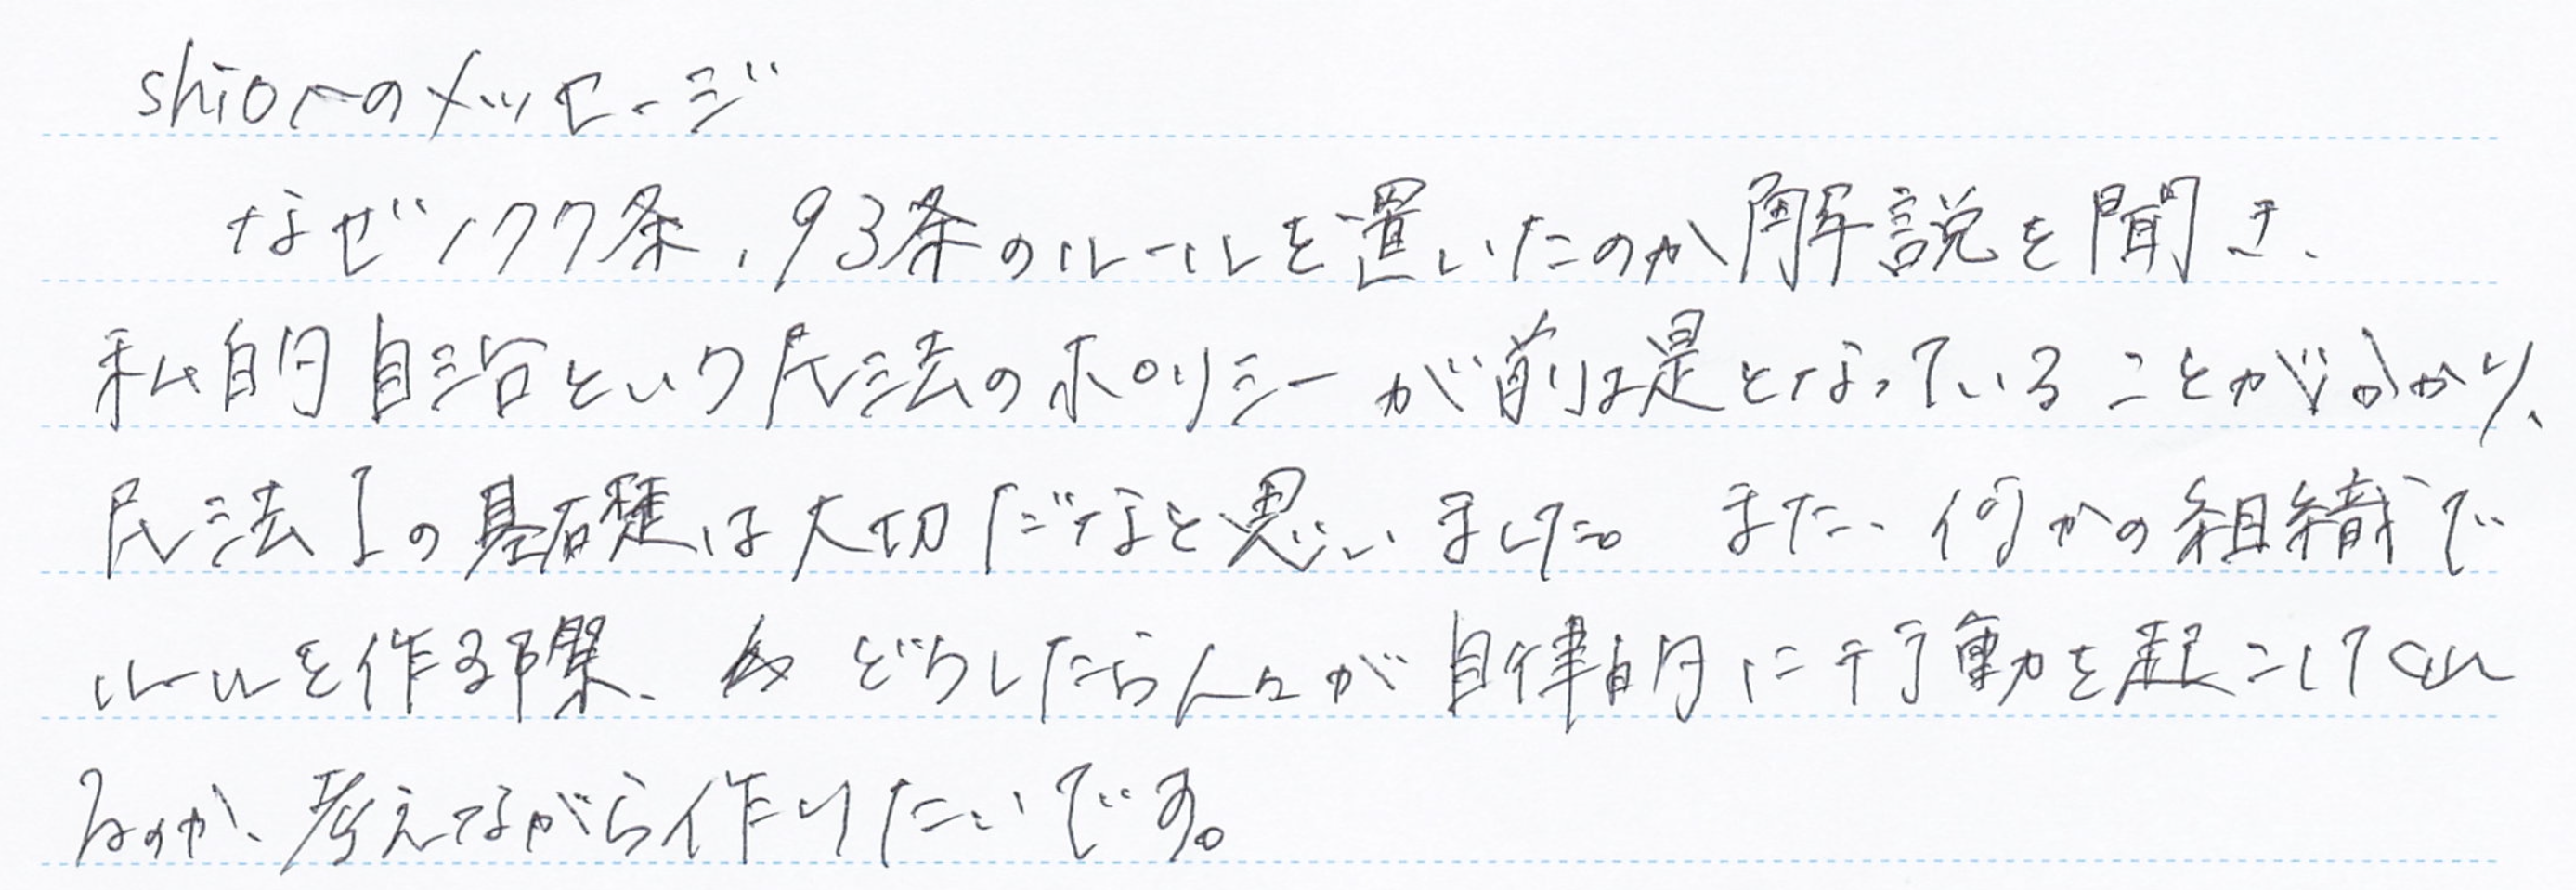 shioへのメッセージ
なぜ177条、93条のルールを置いたのか解説を聞き、
私的自治という民法のポリシーが前提となっていることがわかり、
民法Iの基礎は大切だなと思いました。また、何かの組織で
ルールを作る際、どうしたら人々が自律的に行動を起こしてくれ
るのか、考えながら作りたいです。